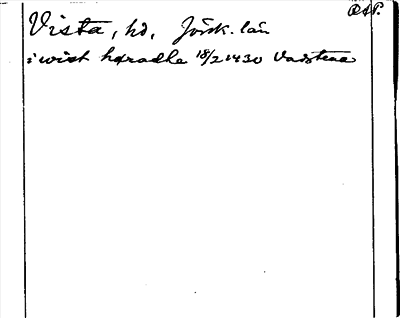 OSP.
Vista, hd, Jönk. län
i wist hæradhe 18/2 1430 Vadstena